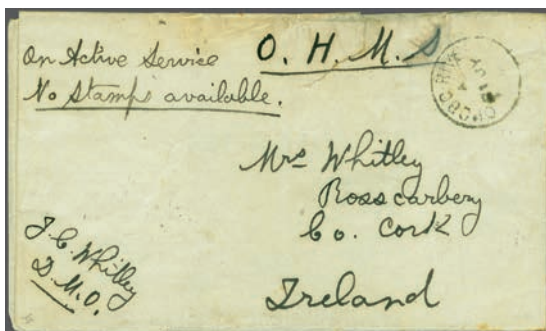 On Active Service
No Stamps available.
O. H. M. S
Mrs Whitley
Rosscarbery
Co. Cork
Ireland
J. C. Whitley
D. M. O.